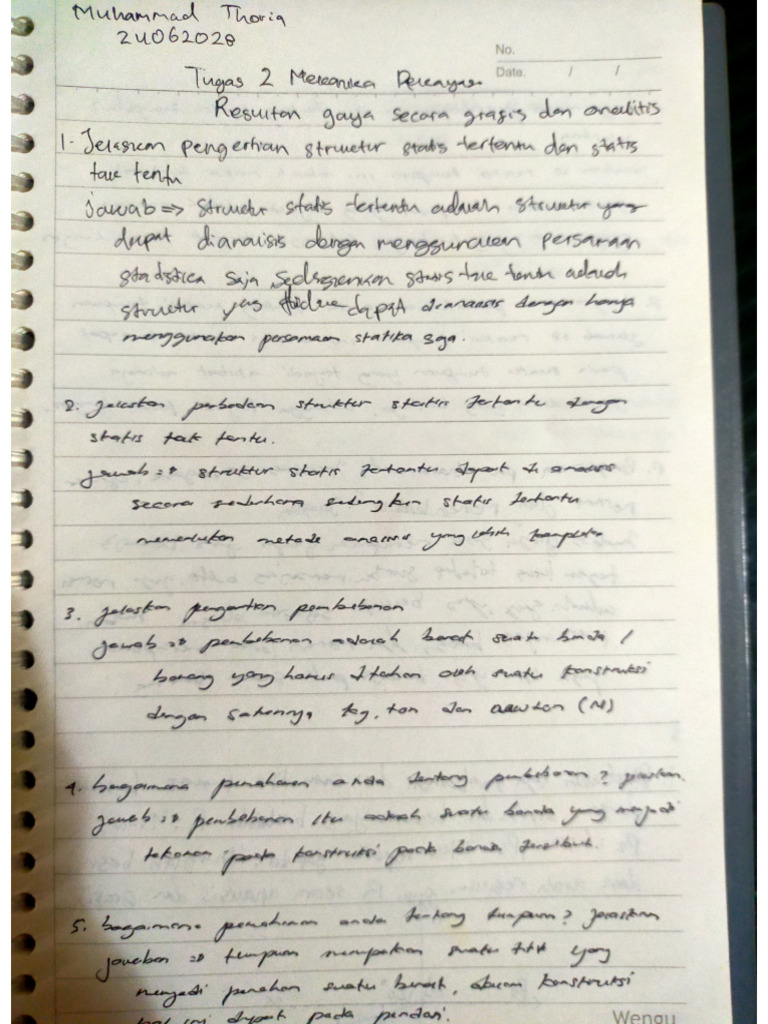 Muhammad Thoriq
24062028
No.
Date. / /
Tugas 2 Mekanika Rekayasa
Resultan gaya secara grafis dan analitis
1. Jelaskan pengertian struktur statis tertentu dan statis
tak tentu
jawab => struktur statis tertentu adalah struktur yang
dapat dianalisis dengan menggunakan persamaan
statistika saja sedangkan statis tak tentu adalah
struktur yang tidak dapat dianalisis dengan hanya
menggunakan persamaan statika saja.
2. jelaskan perbedaan struktur statis tertentu dengan
statis tak tentu.
jawab => struktur statis tertentu dapat di analisis
secara sederhana sedangkan statis tertentu
memerlukan metode analisis yang lebih kompleks
3. jelaskan pengertian pembebanan
jawab => pembebanan adalah berat suatu benda /
barang yang harus ditahan oleh suatu konstruksi
dengan satuannya kg, ton dan newton (N)
4. bagaimana pemahaman anda tentang pembebanan? jelaskan.
jawab => pembebanan itu adalah suatu benda yang menjadi
tekanan pada konstruksi pada benda tersebut.
5. bagaimana pemahaman anda tentang tumpuan? jelaskan
jawaban => tumpuan merupakan suatu titik yang
menjadi penahan suatu berat, dalam konstruksi
hal ini dapat pada pondasi.
Wengu